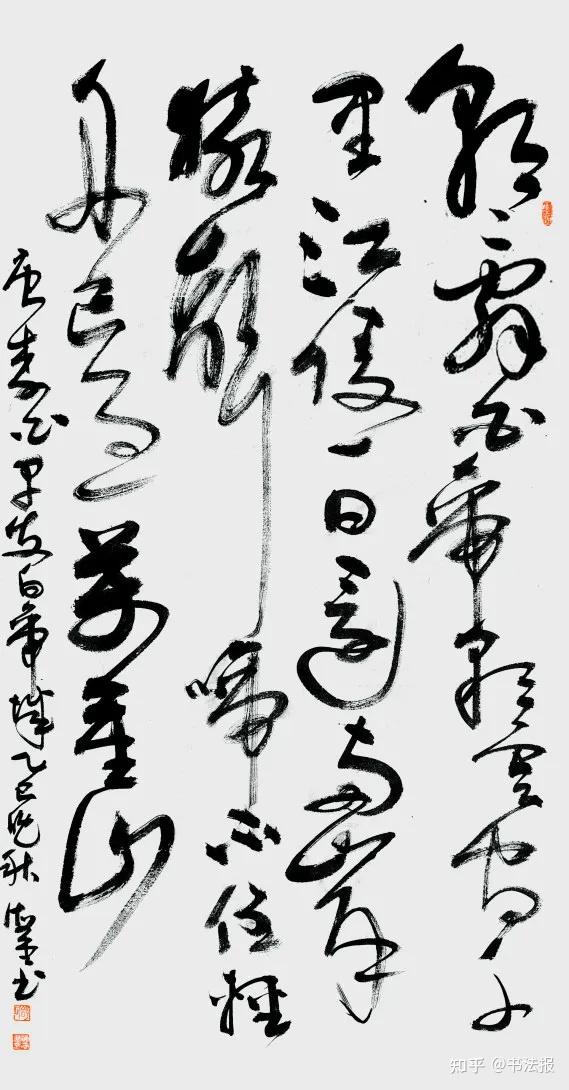 朝辭白帝彩雲間千
里江陵一日還兩岸
猿聲啼不住輕
舟已過萬重山
唐李白早发白帝城乙巳晚秋 书
知乎 @书法报